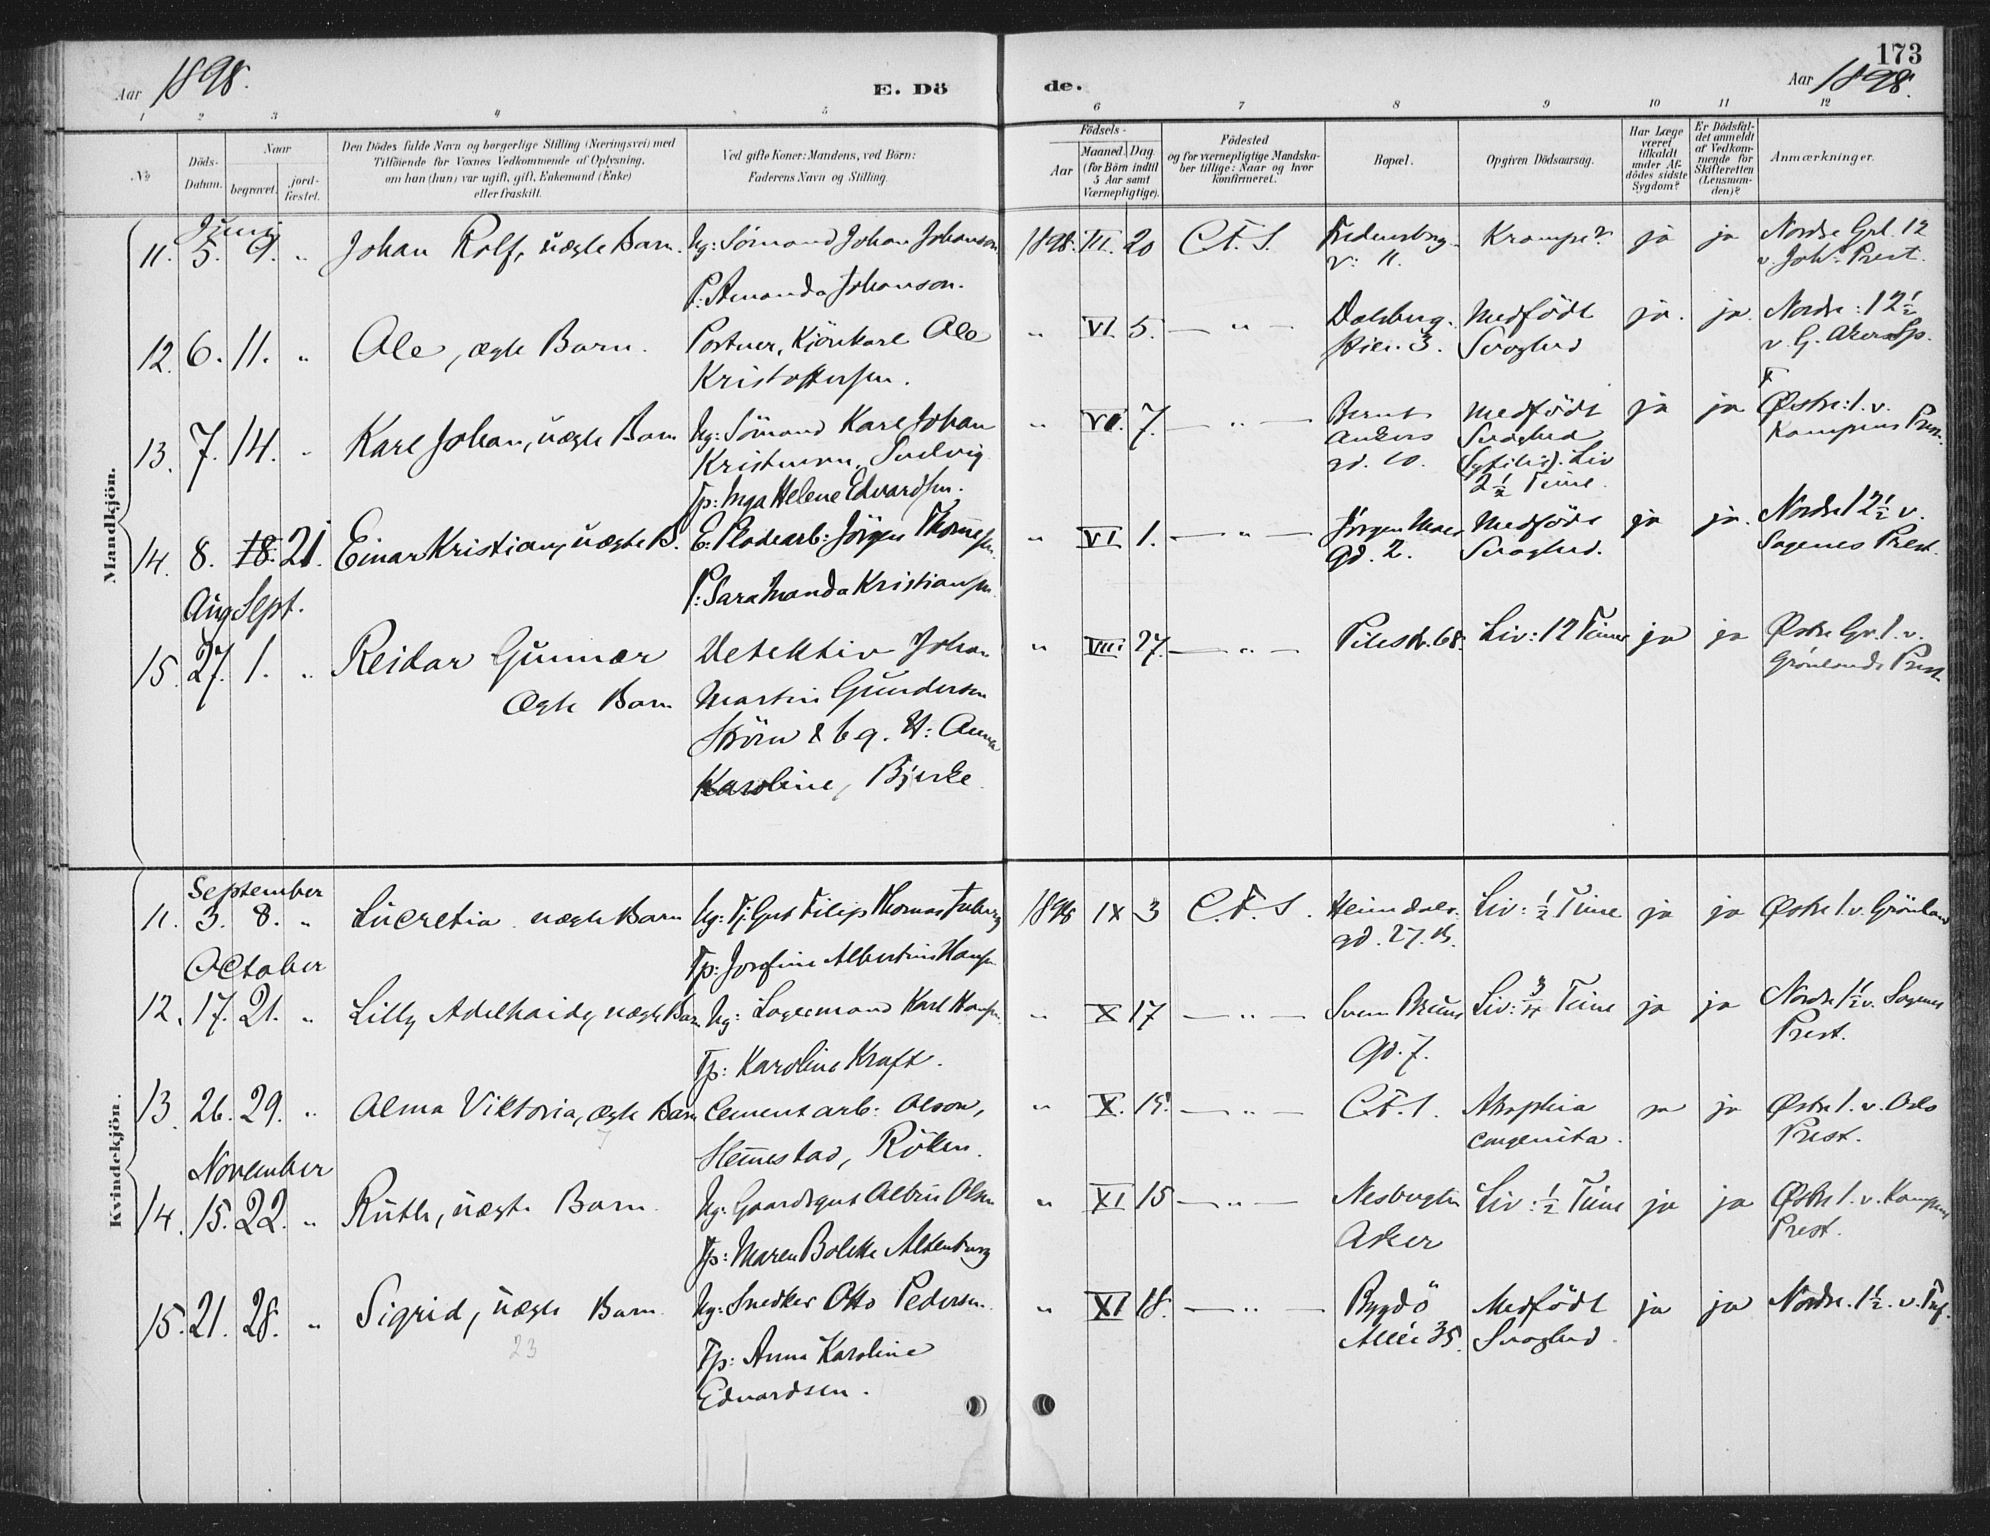 173
Aar 1898.
E. Dö
de.
Aar 1898.
1 2 3 4 5 6 7 8 9 10 11 12
No
Döds-
Datum.
Naar
begravet.
jord-
fæstet.
Den Dödes fulde Navn og borgerlige Stilling (Næringsvei) med
Tilföiende for Voxnes Vedkommende af Oplysning,
om han (hun) var ugift, gift, Enkemand (Enke)
eller fraskilt.
Ved gifte Koner: Mandens, ved Börn:
Faderens Navn og Stilling.
Födsels-
Aar
Maaned. Dag.
(for Börn indtil
5 Aar samt
Værnepligtige).
Födested
og for værnepligtige Mandska-
ber tillige: Naar og hvor
konfirmeret.
Bopæl.
Opgiven Dödsaarsag.
Har Læge
været
tilkaldt
under Af-
dödes sidste
Sygdom?
Er Dödsfal-
det anmeldt
af Vedkom-
mende for
Skifteretten
(Lensman-
den)?
Anmærkninger.
Mandkjön.
Juni
11. 5. 9. " Johan Rolf, uægte Barn. Ug: Sömand Johan Johanson
P: Amanda Johanson.
1898. III. 20 C. F. S. Fredensborg
v: 11. Krampe? ja ja Nordre Grl. 12
v. Joh: Prest.
12. 6. 11. " Ole, ægte Barn. Portner, Kjörekarl Ole
Kristoffersen.
" VI. 5. — " — Dalsberg
stien 3. Medfödt
Svaghed ja. ja. Nordre: 12 1/2
v. G. Akers Sp.
13. 7. 14. " Karl Johan, uægte Barn Ug: Sömand Karl Johan
Kristensen, Sudvig
Fp: Inga Helene Edvardsen.
" VI. 7. — " — Bernt
Ankers
gd. 10. Medfödt
Svaghed
(Syfilis). Liv
2 1/2 Time. ja ja Østre: 1. v.
Kampens Prest.
14. 8. 18. 21. Einar Kristian, uægte B. E: Pladearb: Jörgen Thomesen
P: Sara Manda Kristiansen
" VI 1. — " — Jörgen Moes
gd. 2. Medfödt
Svaghed. ja ja. Nordre 12 1/2 v.
Sagenes Prest.
Aug Sept.
15. 27. 1. " Reidar Gunnar
Ægte Barn Detektiv Johan
Martin Gundersen
Ström & bg. H: Anna
Karoline, Bjerke
" VIII 27. — " — Pilestr. 68. Liv: 12 Timer ja ja Østre Gr. 1. v.
Grönlands Prest
Kvindekjön.
September
11. 3. 8. " Lucretia uægte Barn Ug: Tj. Gut Filip Thomas
Fp: Josefine Albertine Hansen
1898 IX 3 C. F. S. Heimdals
gd. 27. B. Liv: 1/2 Time ja ja Østre 1. v. Grönland
October
12. 17. 21. " Lilly Adelhaide, uægte Barn Ug: Lagermand Karl Hansen.
Fp: Karoline Kraft.
" X 17 — " — Svein Bruns
Gd. 7. Liv: 3/4 Time ja ja Nordre 1 1/2 v. Sagenes
Prest.
13. 26. 29. " Alma Viktoria, ægte Barn Cementarb: Olson,
Hennestad, Röken.
" X. 15. — " — C. F. S. Atrophia
congenita. ja ja Østre 1. v. Oslo
Prest.
November
14. 15. 22. " Ruth, uægte Barn. Ug. Gaardsgut Albin Olsen
Fp: Maren Bolette Altenburg
" XI 15 — " — Nesbergln
Aker Liv: 1/2 Time ja ja Østre 1. v. Kampens
Prest.
15. 21. 28. " Sigrid, uægte Barn. Ug: Snedker Otto Pedersen.
23
Fp: Anna Karoline
Edvardsen.
" XI 18. — " — Bygdö
Allée 35. Medfödt
Svaghed. ja ja Nordre. 1 1/2. v.